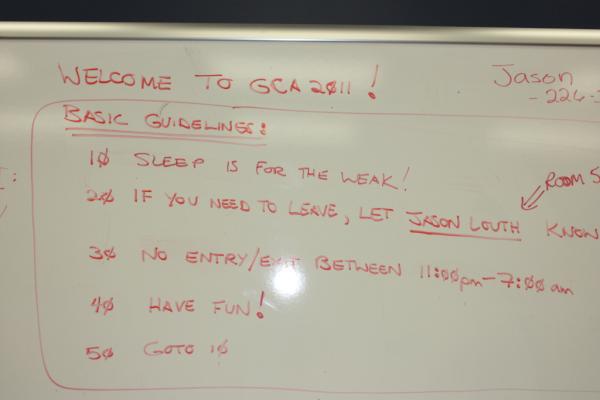 WELCOME TO GCA 2011!
Jason
- 226-
BASIC GUIDELINES:
10 SLEEP IS FOR THE WEAK!
ROOM 5
20 IF YOU NEED TO LEAVE, LET JASON LOUTH KNOW
30 NO ENTRY/EXIT BETWEEN 11:00pm-7:00am
40 HAVE FUN!
50 GOTO 10